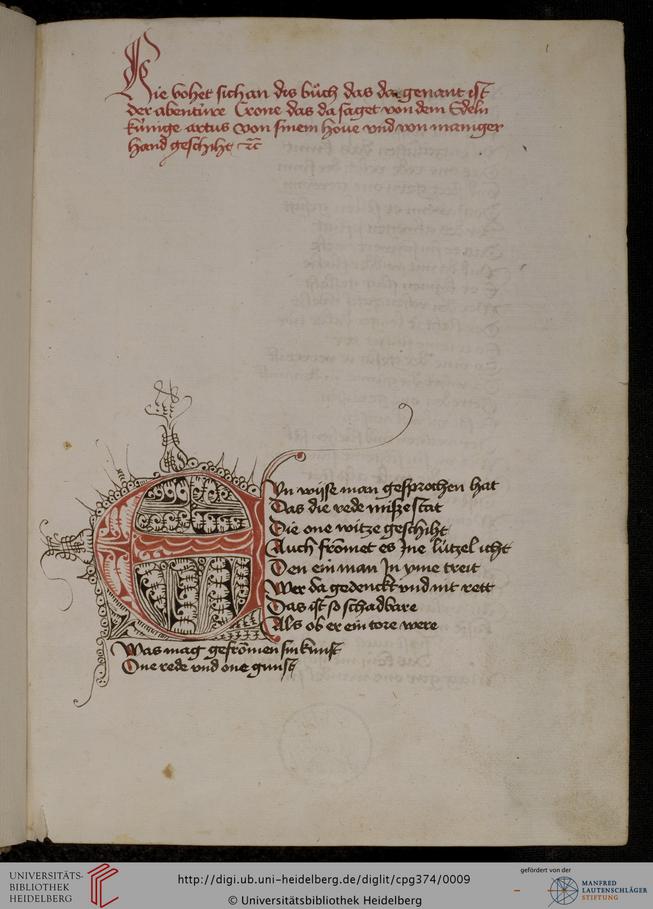 Hie vohet sich an dis bůch das da genant ist
der abentúre Crone das da saget von dem Edeln
kúnige artus von sinem houe vnd von maniger
hand geschiht ⁊c̃
EYn wyse man gesprochen hat
Das die rede misze stat
Die one witze geschiht
Auch frömet es Jne lützel icht
Den ein man Jn yme treit
Wer da gedenckt vnd nit rett
Das ist so schadbare
Als ob er ein tore were
Was mag gefrömen sin kunst
One rede vnd one gunst
UNIVERSITÄTS-
BIBLIOTHEK
HEIDELBERG
http://digi.ub.uni-heidelberg.de/diglit/cpg374/0009
© Universitätsbibliothek Heidelberg
gefördert von der
MANFRED
LAUTENSCHLÄGER
STIFTUNG